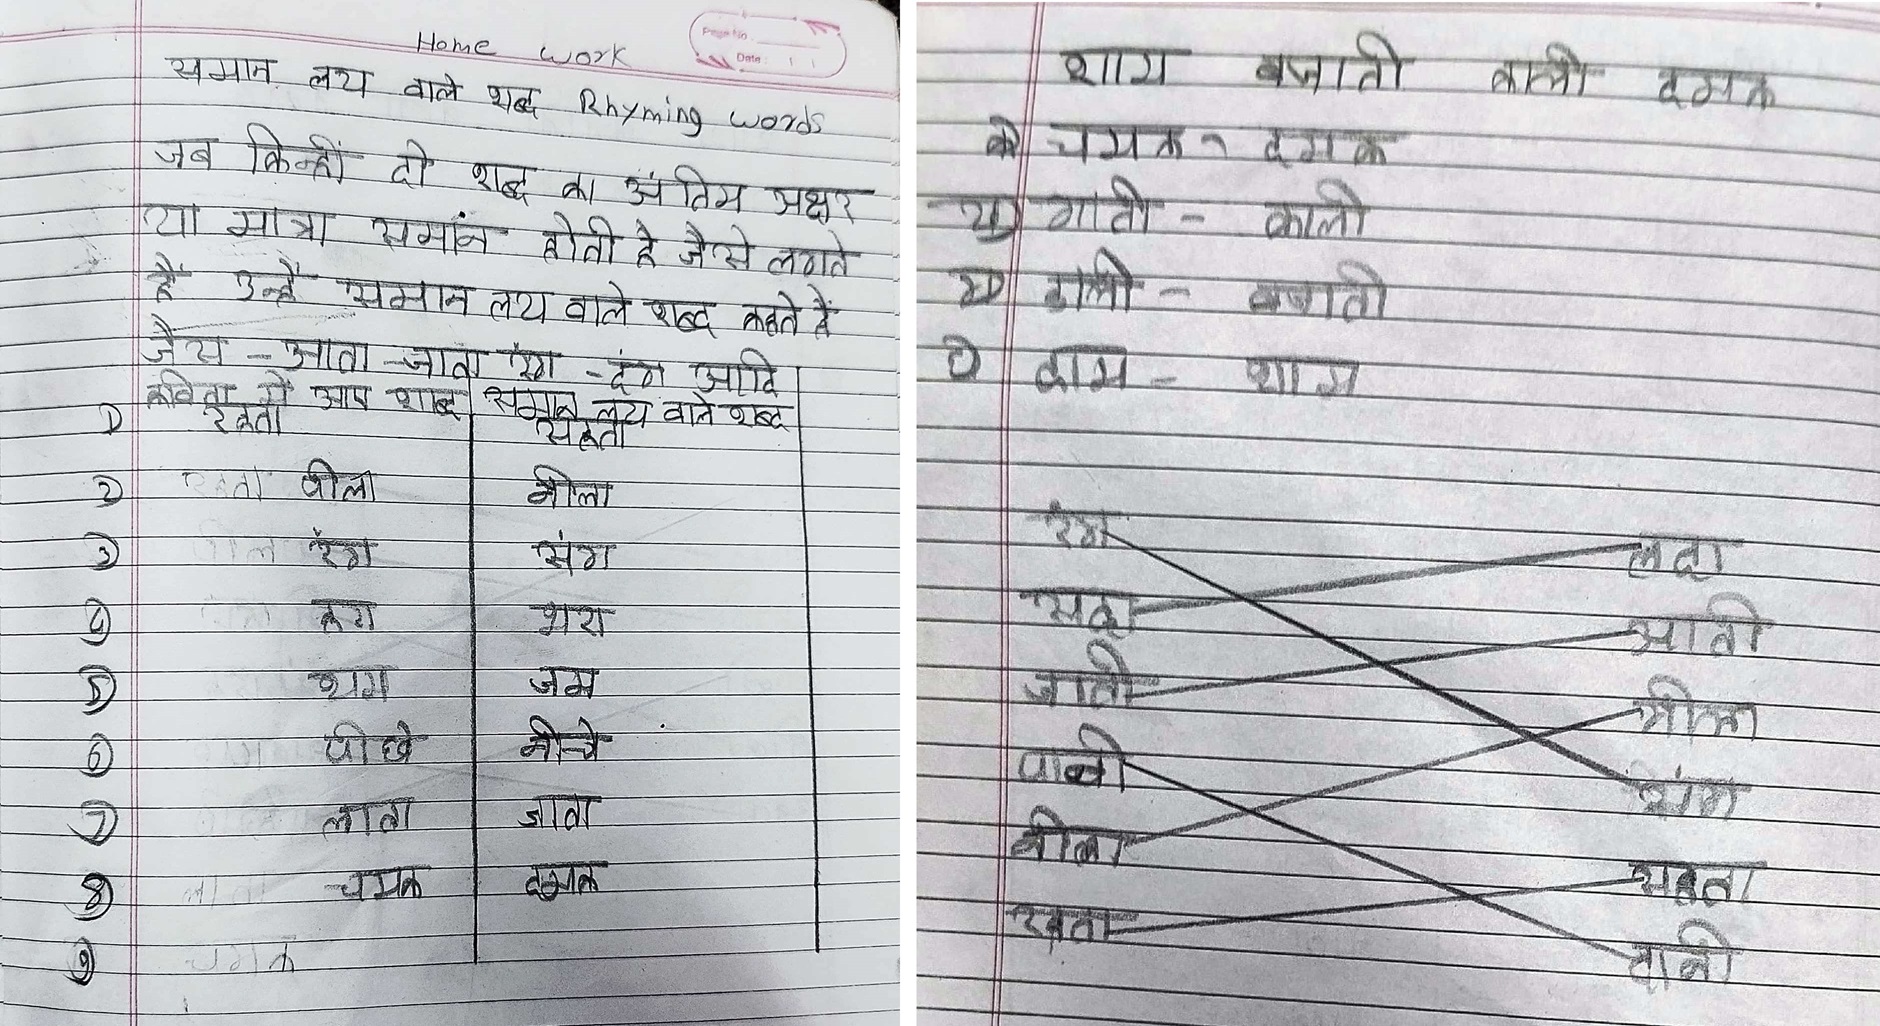 Home Work
Page No.
Date:
समान लय वाले शब्द Rhyming words
जब किन्हीं दो शब्द का अंतिम अक्षर
या मात्रा समांन होती है जैसे लगते
हैं उन्हें समान लय वाले शब्द कहते हैं
जैसे - आता - जाता रंग - दंग आदि
कविता में आए शब्द समान लय वाले शब्द
1) रहता सहता
2) पीला नीला
3) रंग संग
4)
5) जम
6) पीछे नीचे
7) लाता जाता
8) चमक दमक
9)
शाम बजाती काली दमक
क) चमक - दमक
गाती - काली
डाली - बजाती
दाम - शाम
रंग लदा
सदा आती
जाती नीला
पानी संग
पीला सहता
रहता नानी